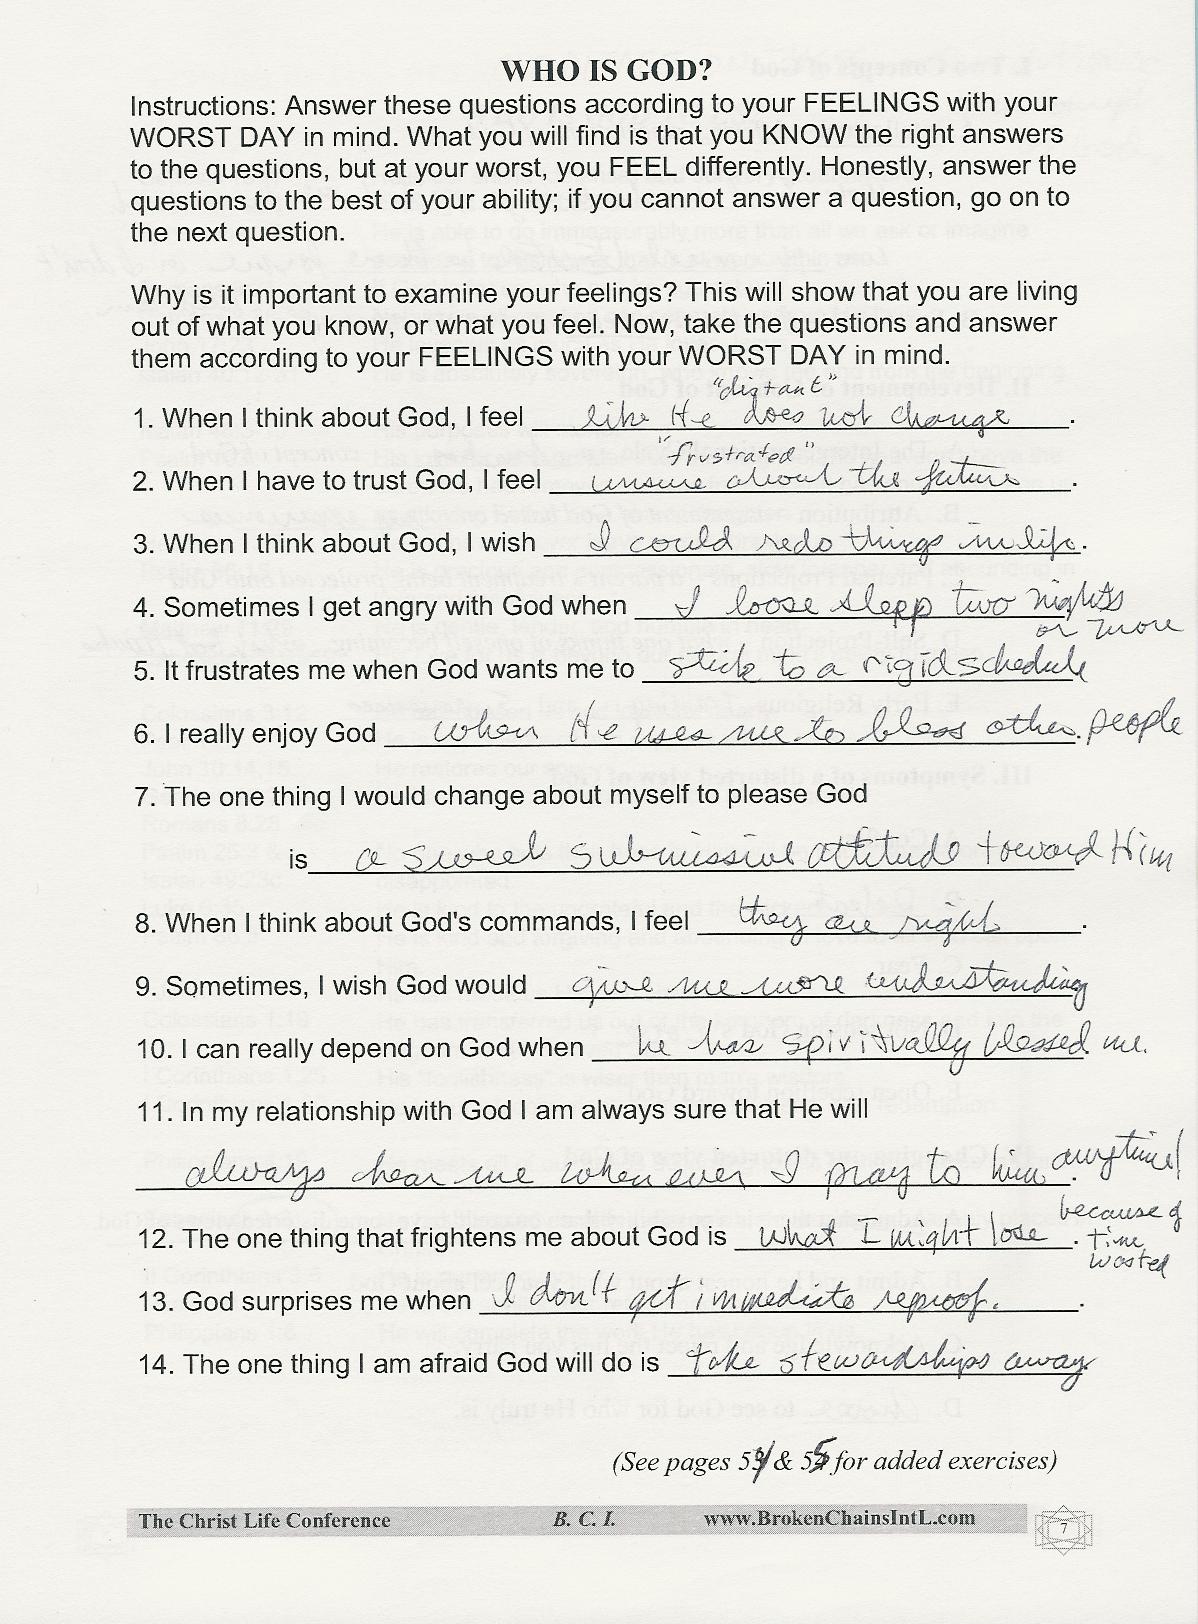 WHO IS GOD?
Instructions: Answer these questions according to your FEELINGS with your
WORST DAY in mind. What you will find is that you KNOW the right answers
to the questions, but at your worst, you FEEL differently. Honestly, answer the
questions to the best of your ability; if you cannot answer a question, go on to
the next question.
Why is it important to examine your feelings? This will show that you are living
out of what you know, or what you feel. Now, take the questions and answer
them according to your FEELINGS with your WORST DAY in mind.
"distant"
1. When I think about God, I feel like He does not change.
"frustrated"
2. When I have to trust God, I feel unsure about the future.
3. When I think about God, I wish I could redo things in life.
4. Sometimes I get angry with God when I loose slepp two nights
or more
5. It frustrates me when God wants me to stick to a rigid schedule
6. I really enjoy God when He uses me to bless other. people
7. The one thing I would change about myself to please God
is a sweet submissive attitude toward Him
8. When I think about God's commands, I feel they are right.
9. Sometimes, I wish God would give me more understanding
10. I can really depend on God when he has spiritually blessed me.
11. In my relationship with God I am always sure that He will
always hear me when ever I pray to him. anytime!
12. The one thing that frightens me about God is what I might lose. because of
time
wasted
13. God surprises me when I don't get immediate reproof..
14. The one thing I am afraid God will do is take stewardships away
(See pages 54 & 55 for added exercises)
The Christ Life Conference B. C. I. www.BrokenChainsIntL.com 7